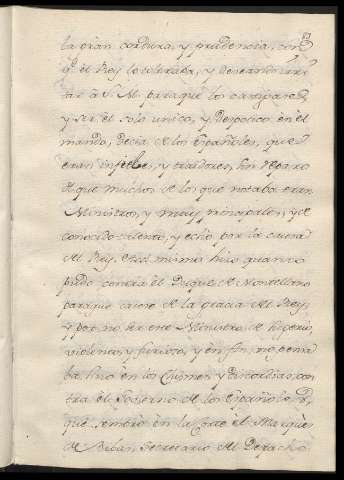 la gran cordura, y prudencia, con
q.e el Rey lo toleraba, y deseando irri
tar à S. M. para que los castigase,
y ser el solo unico, y despotico en el
mando, decia de los Españoles, que
eran infieles, y traidores, sin reparo
de que muchos de los que notaba eran
Ministros, y muy principales, y de
conocido talento, y
del Rey. Este mismo hizo quanto
pudo contra el Duque de Montellano
para que caiese de la gracia del Rey,
y por no ser este Ministro de
violencia, y furioso, y en fin, no
ba sino en los Chismes, y discordias con
tra el Govierno de los Españoles
que sembrò en la Corte el Marques
de Secretario del Despacho